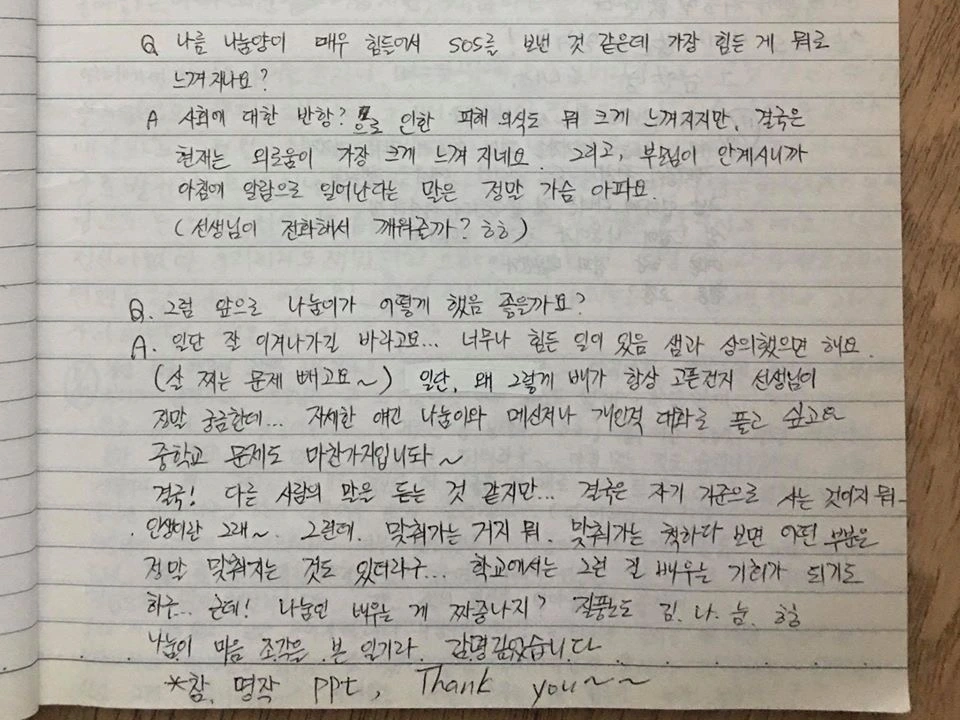 Q 나름 나눔양이 매우 힘들어서 SOS를 보낸 것 같은데 가장 힘든 게 뭐로
느껴지나요?
A 사회에 대한 반항? 으로 인한 피해 의식도 뭐 크게 느껴지지만, 결국은
현재는 외로움이 가장 크게 느껴지네요. 그리고, 부모님이 안계시니까
아침에 알람으로 일어난다는 말은 정말 가슴 아파요.
(선생님이 전화해서 깨워줄까? ㅎㅎ)
Q. 그럼 앞으로 나눔이가 어떻게 했음 좋을까요?
A. 일단 잘 이겨나가길 바라고요... 너무나 힘든 일이 있음 샘과 상의했으면 해요.
(살 찌는 문제 빼고요~) 일단, 왜 그렇게 배가 항상 고픈건지 선생님이
정말 궁금한데... 자세한 얘긴 나눔이와 메신저나 개인적 대화로 풀고 싶고요
중학교 문제도 마찬가지입니다~
결국! 다른 사람의 말은 듣는 것 같지만... 결국은 자기 기준으로 사는 것이지 뭐~
인생이란 그래~. 그런데. 맞춰가는 거지 뭐. 맞춰가는 척하다 보면 어떤 부분은
정말 맞춰지는 것도 있더라구... 학교에서는 그런 걸 배우는 기회가 되기도
하구... 근데! 나눔인 배우는 게 짜증나지? 질풍노도 김.나.눔. ㅎㅎ
나눔이 마음 조각을 본 일기라. 감명깊었습니다
*참, 명작 ppt, Thank you~~